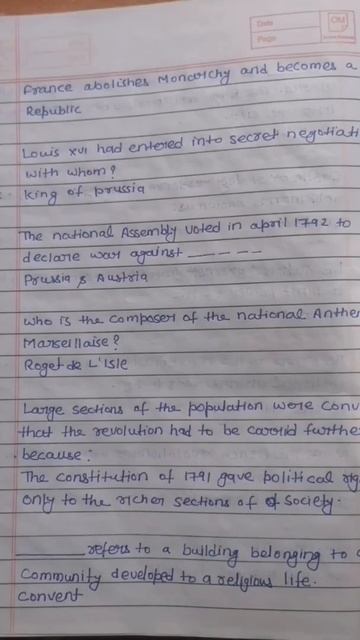 Date
Page
France abolishes Monarchy and becomes a
Republic
Louis XVI had entered into secret negotiati
with whom?
king of prussia
The national Assembly voted in april 1792 to
declare war against _ _ _ _ _
Prussia & Austria
who is the composer of the national Anthe
Marseillaise?
Roget de L'Isle
Large sections of the population were conv
that the revolution had to be carried furthe
because:
The constitution of 1791 gave political rig
only to the richer sections of society.
______ refers to a building belonging to a
Community developed to a religious life.
Convent